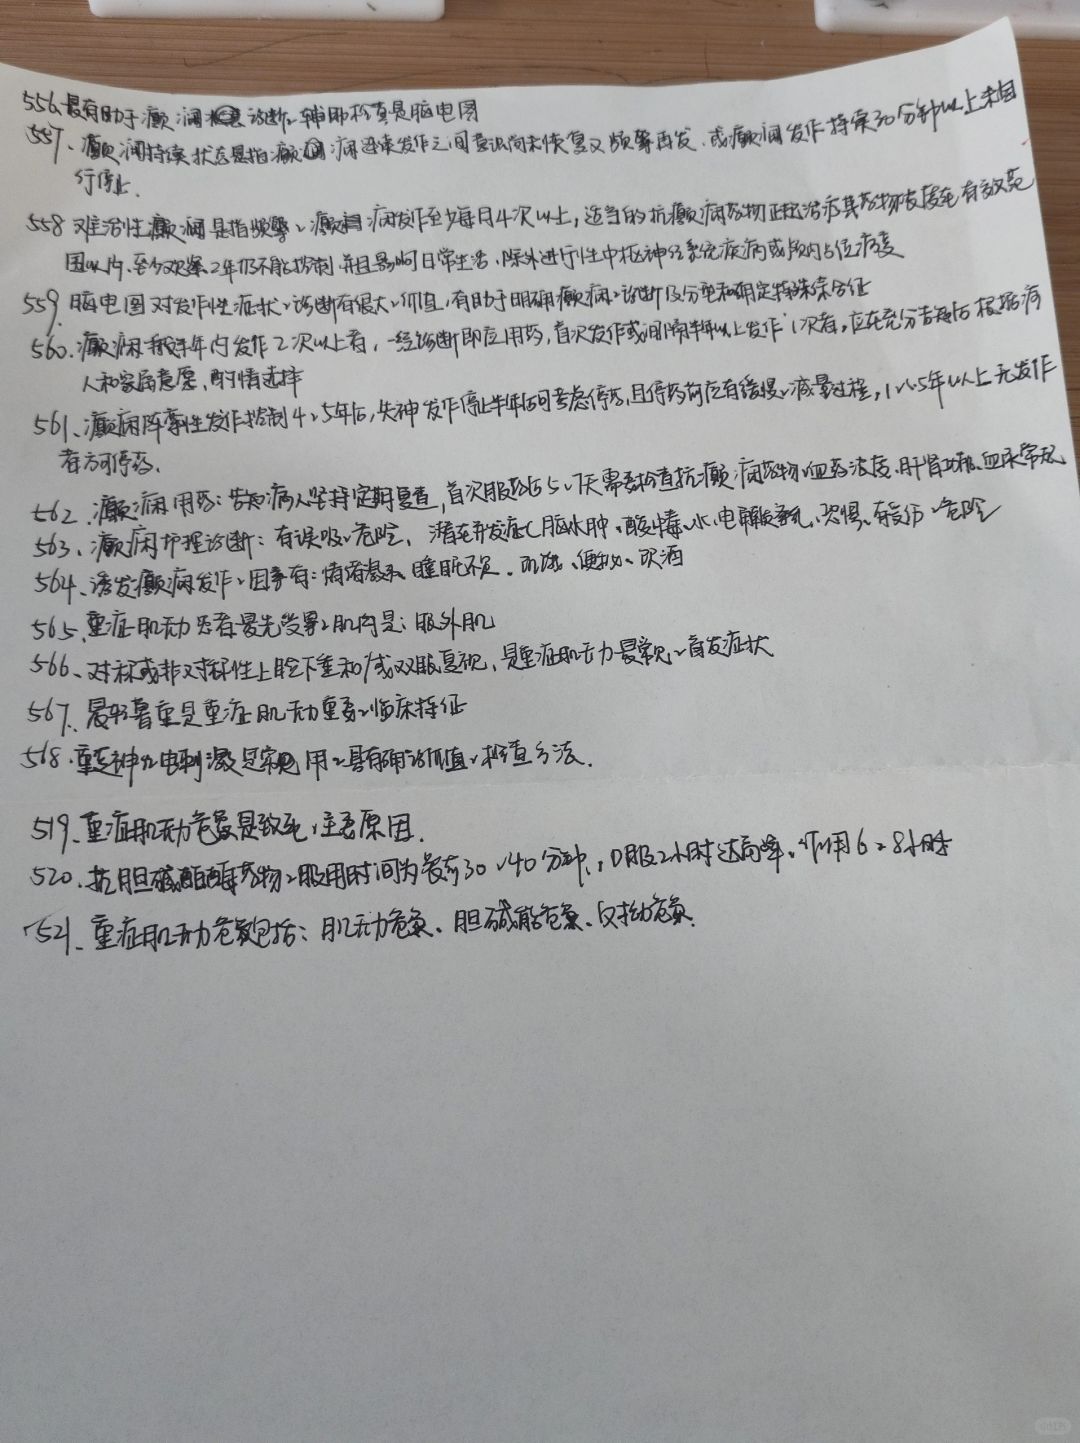 556、最有助于癫痫诊断、辅助检查是脑电图
557、癫痫持续状态是指癫痫连续发作之间意识尚未恢复又频繁再发,或癫痫发作持续30分钟以上未自
行停止.
558 难治性癫痫是指频繁、癫痫发作至少每月4次以上,适当的抗癫痫药物正规治疗其药物浓度在有效范
围以内,至少观察、2年仍不能控制 并且影响日常生活,除外进行性中枢神经系统疾病或颅内占位病变
559、脑电图对发作性症状、诊断有很大、价值,有助于明确癫痫、诊断及分型和确定特殊综合征
560、癫痫 半年内发作2次以上者,一经诊断即应用药,首次发作或间隔半年以上发作1次者,应在充分告知后根据病
人和家属意愿,酌情选择
561、癫痫阵挛性发作控制4、5年后,失神发作停止半年后可考虑停药,且停药前应有缓慢、减量过程,1、1.5年以上无发作
者方可停药.
562、癫痫用药:告知病人坚持定期复查,首次服药后5、7天需要检查抗癫痫药物、血药浓度、肝肾功能、血尿常规
563、癫痫护理诊断:有误吸、危险,潜在并发症:脑水肿、酸中毒、水、电解质紊乱,恐惧、有受伤、危险
564、诱发癫痫发作、因素有:情绪激动、睡眠不足、饥饿、便秘、饮酒
565、重症肌无力患者最先受累、肌肉是:眼外肌
566、对称或非对称性上睑下垂和/或双眼复视,是重症肌无力最常见、首发症状
567、晨轻暮重是重症肌无力重要、临床特征
568、重复神经电刺激是常见用、具有确诊价值、检查方法.
519、重症肌无力危象是致死、主要原因.
520、抗胆碱酯酶药物、服用时间为餐前30、40分钟,口服2小时达高峰,作用6、8小时
521、重症肌无力危象包括:肌无力危象、胆碱能危象、反拗危象